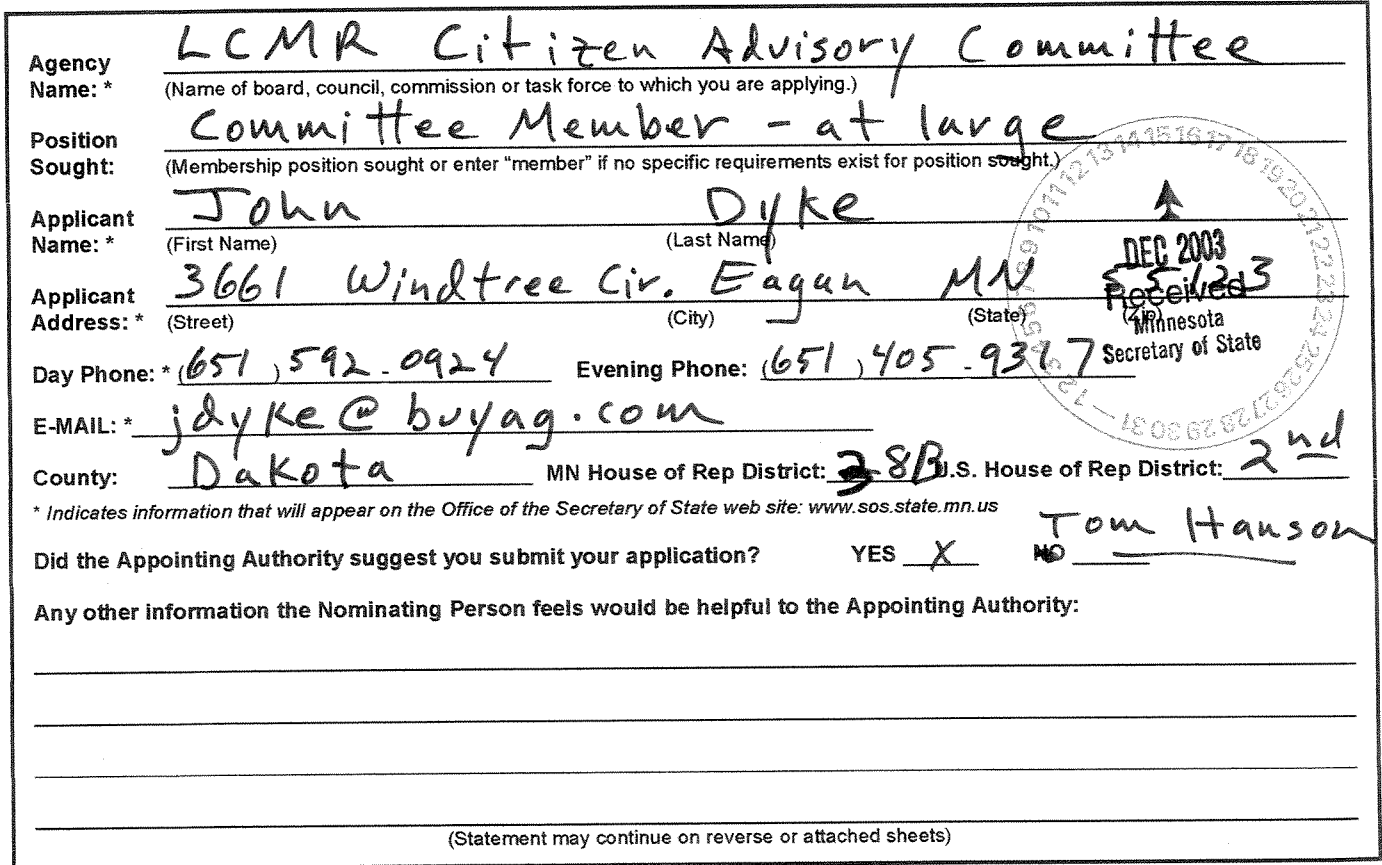 LCMR Citizen Advisory Committee
Agency Name: * (Name of board, council, commission or task force to which you are applying.)
Committee Member - at large
Position Sought: (Membership position sought or enter "member" if no specific requirements exist for position sought.)
John Dyke
Applicant Name: * (First Name) (Last Name)
3661 Windtree Cir. Eagan MN 55123
Applicant Address: * (Street) (City) (State) (Zip)
DEC 2003
Received
Minnesota
Secretary of State
Day Phone: * (651) 592-0924 Evening Phone: (651) 405-9317
E-MAIL: * jdyke@buyag.com
County: Dakota MN House of Rep District: 38B U.S. House of Rep District: 2nd
* Indicates information that will appear on the Office of the Secretary of State web site: www.sos.state.mn.us
Tom Hanson
Did the Appointing Authority suggest you submit your application? YES X NO
Any other information the Nominating Person feels would be helpful to the Appointing Authority:
(Statement may continue on reverse or attached sheets)